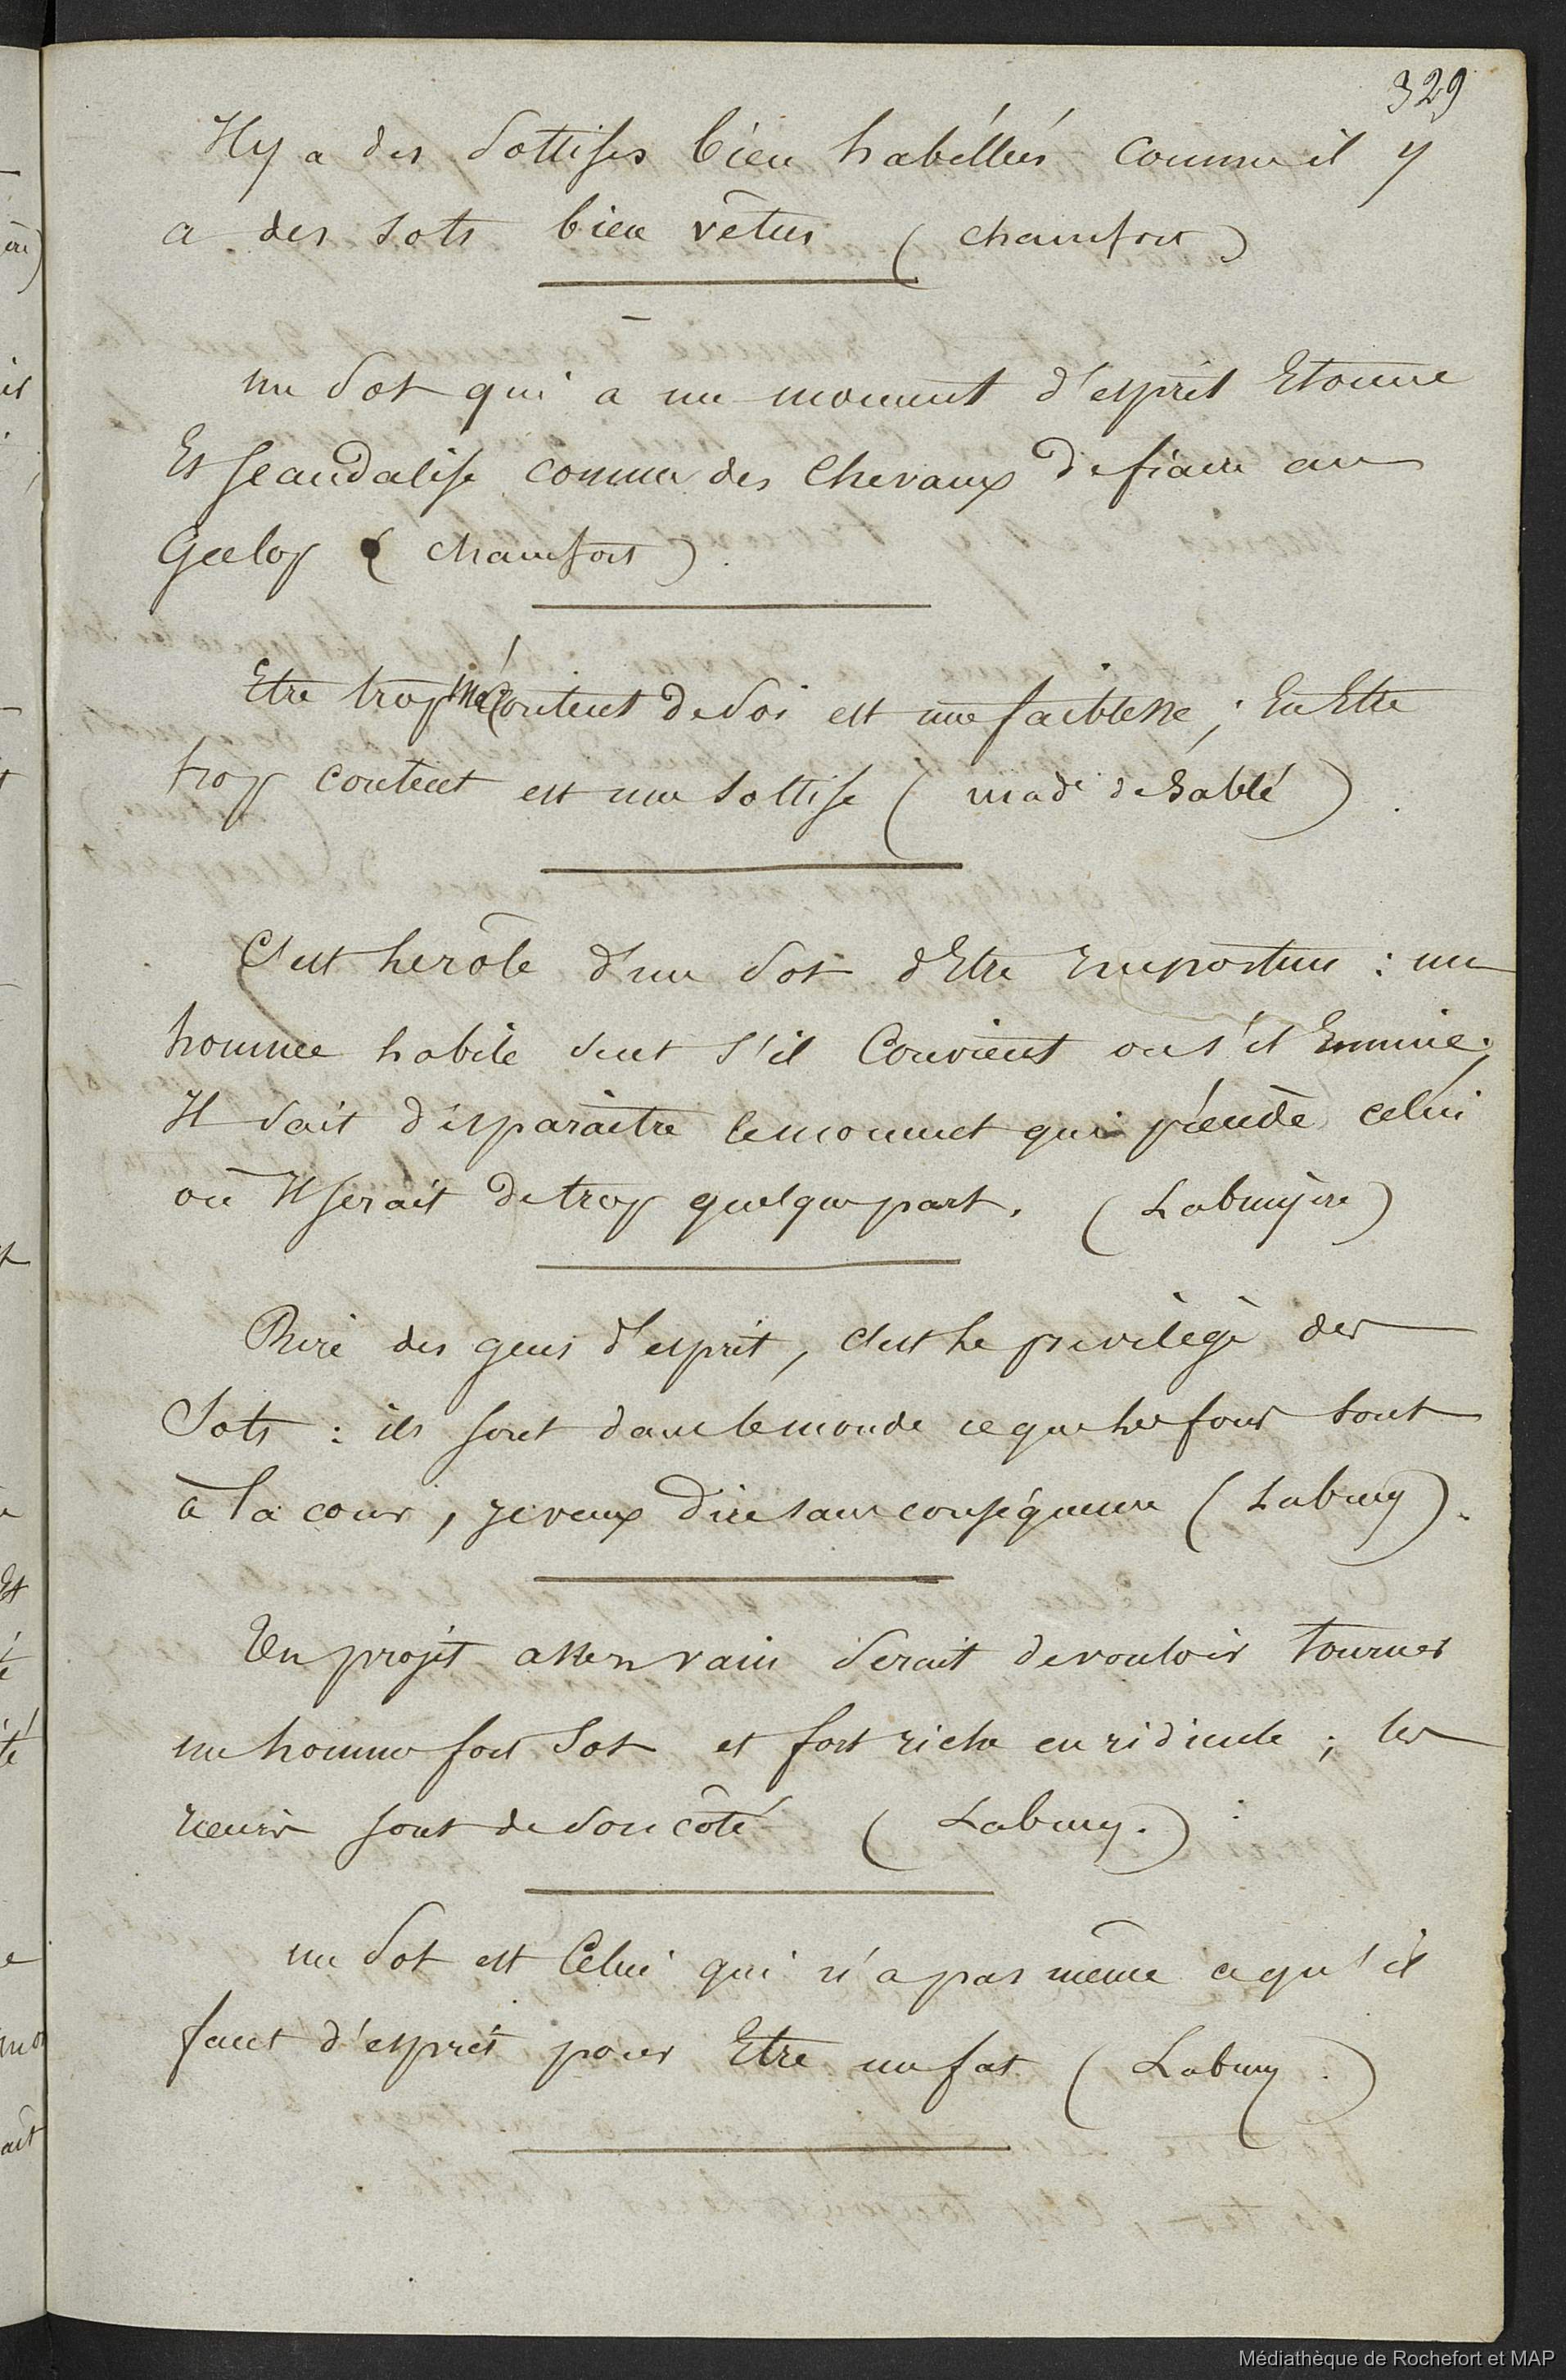 329
Il y a des sottises bien habillées comme il y
a des sots bien vêtus (chamfort)
un sot qui a un moment d'esprit Etonne
Et scandalise comme des chevaux de fiacre au
Galop (chamfort)
Etre trop mécontent de soi est une faiblesse ; En Etre
trop content est une sottise (made de Sablé)
C'est le rôle d'un sot d'Etre Importun : un
homme habile sent s'il Convient ou s'il Ennuie.
Il sait disparaitre le moment qui précède celui
où Il serait de trop quelque part. (Labruyère)
Rire des gens d'esprit, c'est le privilège des
Sots : ils sont dans le monde ce que les fous sont
à la cour, je veux dire sans conséquence (Labruy).
Un projet assez vain serait de vouloir tourner
un homme fort sot et fort riche en ridicule ; les
rieurs sont de son côté (Labruy.)
un sot est Celui qui n'a pas même ce qu'il
faut d'esprit pour Etre un fat (Labruy.)
Médiathèque de Rochefort et MAP